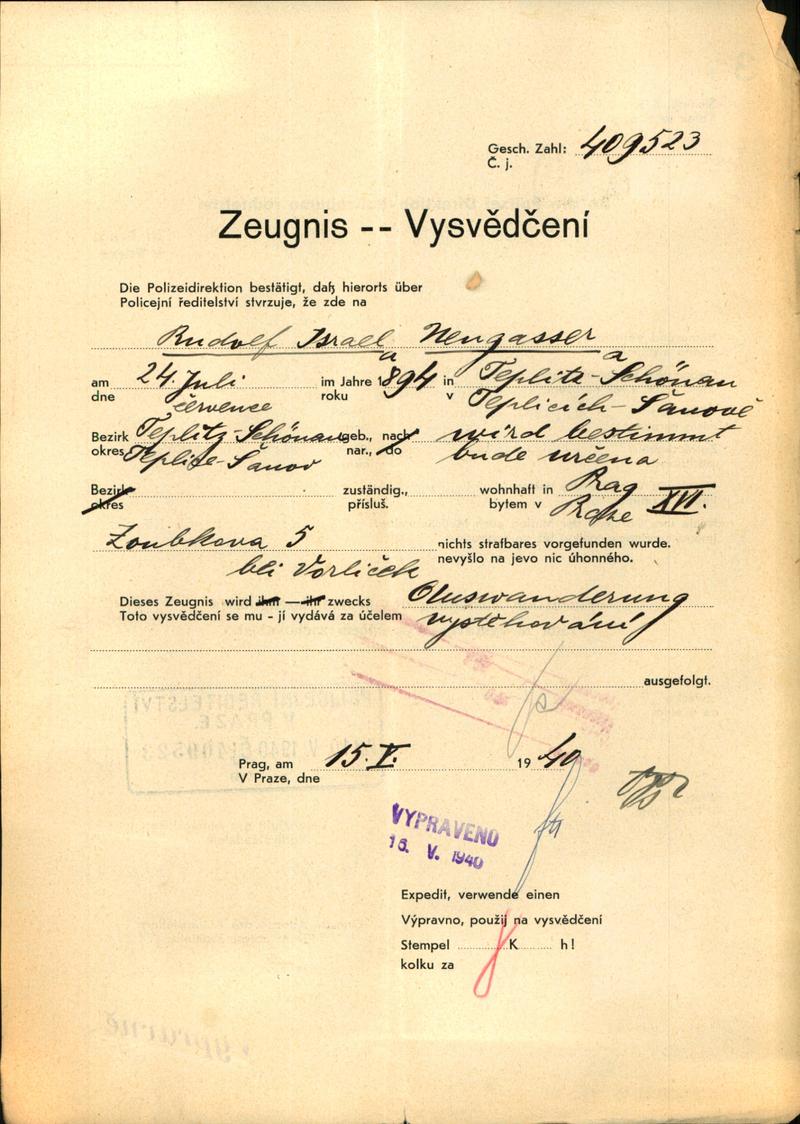 Gesch. Zahl: 409523
Č. j.
Zeugnis -- Vysvědčení
Die Polizeidirektion bestätigt, daß hierorts über
Policejní ředitelství stvrzuje, že zde na
Rudolf Israel Neugasser
a a
am 24. Juli im Jahre 1894 in Teplitz-Schönau
dne července roku v Teplicích-Šanově
Bezirk Teplitz-Schönau geb., nach wird bestimmt
okres Teplice-Šanov nar., do bude určena
Bezirk zuständig., wohnhaft in Prag XVI.
okres přísluš. bytem v Praze
Zoubkova 5 nichts strafbares vorgefunden wurde.
bei Vorliček nevyšlo na jevo nic úhonného.
Dieses Zeugnis wird ihm — ihr zwecks Auswanderung
Toto vysvědčení se mu - jí vydává za účelem vystěhování
ausgefolgt.
Prag, am 15. V. 1940
V Praze, dne
VYPRAVENO
16. V. 1940
Expedit, verwende einen
Výpravno, použij na vysvědčení
Stempel K h!
kolku za